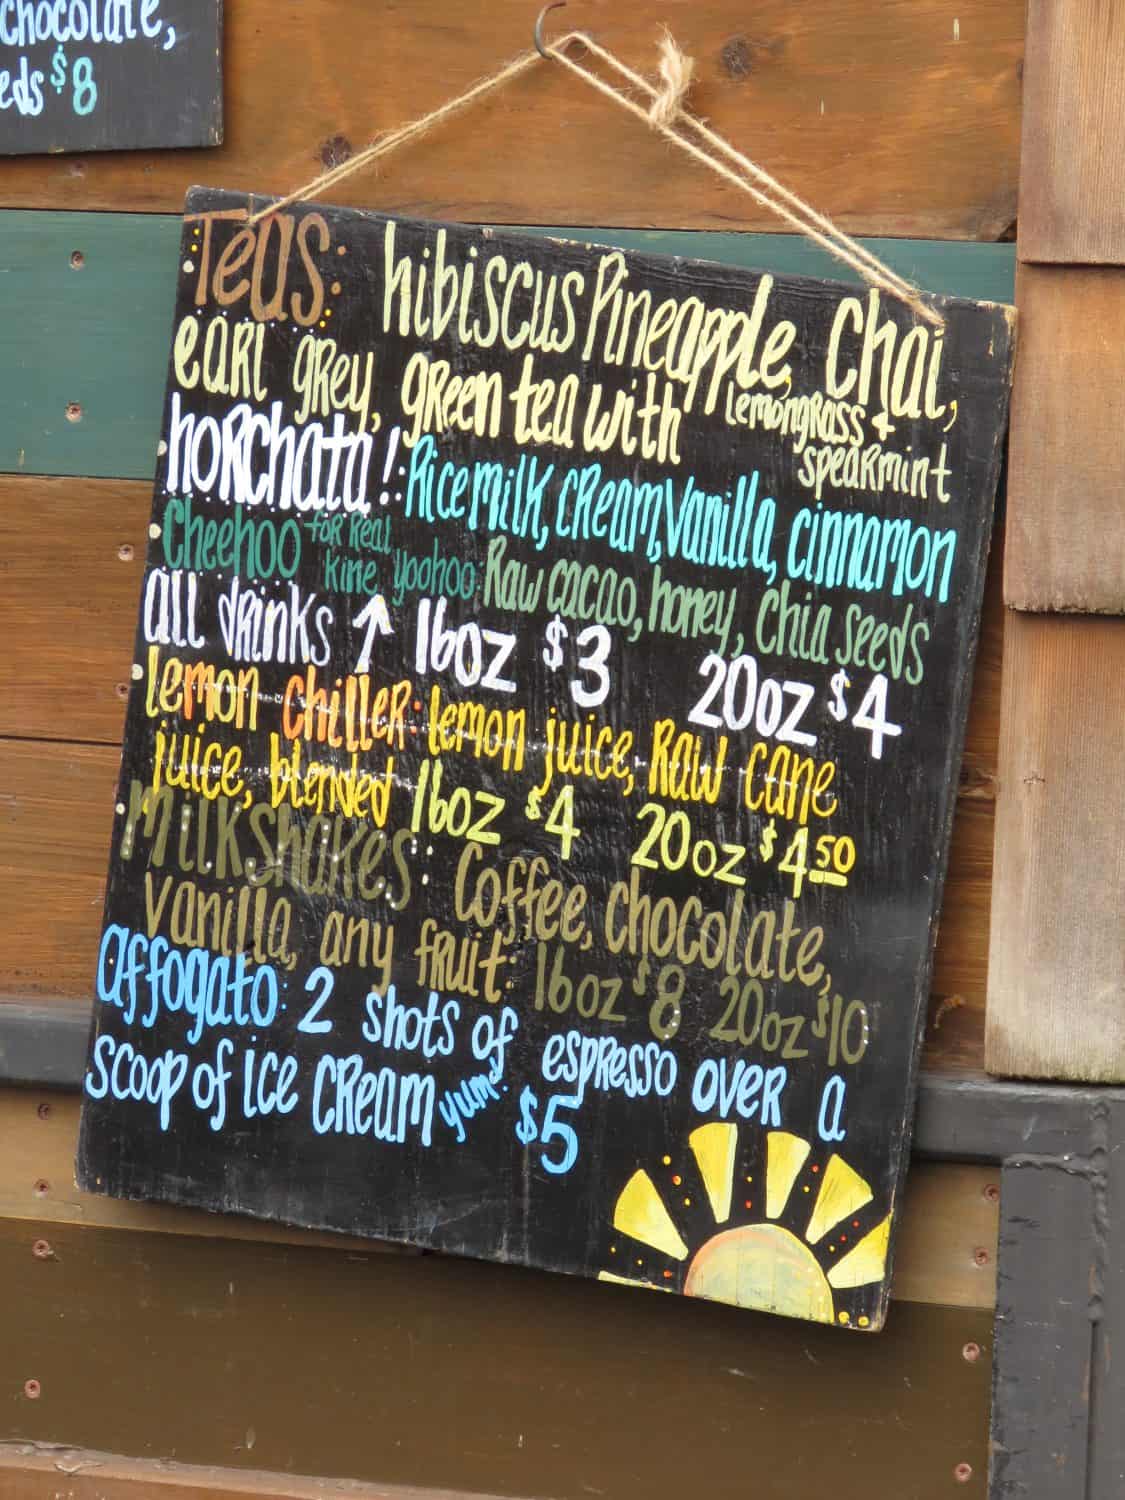 chocolate,
eds $8
Teas: hibiscus Pineapple, Chai,
earl grey, green tea with lemongrass &
spearmint
horchata!: Rice milk, cream, vanilla, cinnamon
Cheehoo for real
kine yoohoo: Raw cacao, honey, chia seeds
all drinks ↑ 16oz $3 20oz $4
lemon chiller: lemon juice, Raw cane
juice, blended 16oz $4 20oz $4.50
Milkshakes: Coffee, chocolate,
vanilla, any fruit: 16oz $8 20oz $10
affogato: 2 shots of espresso over a
scoop of ice cream yum! $5